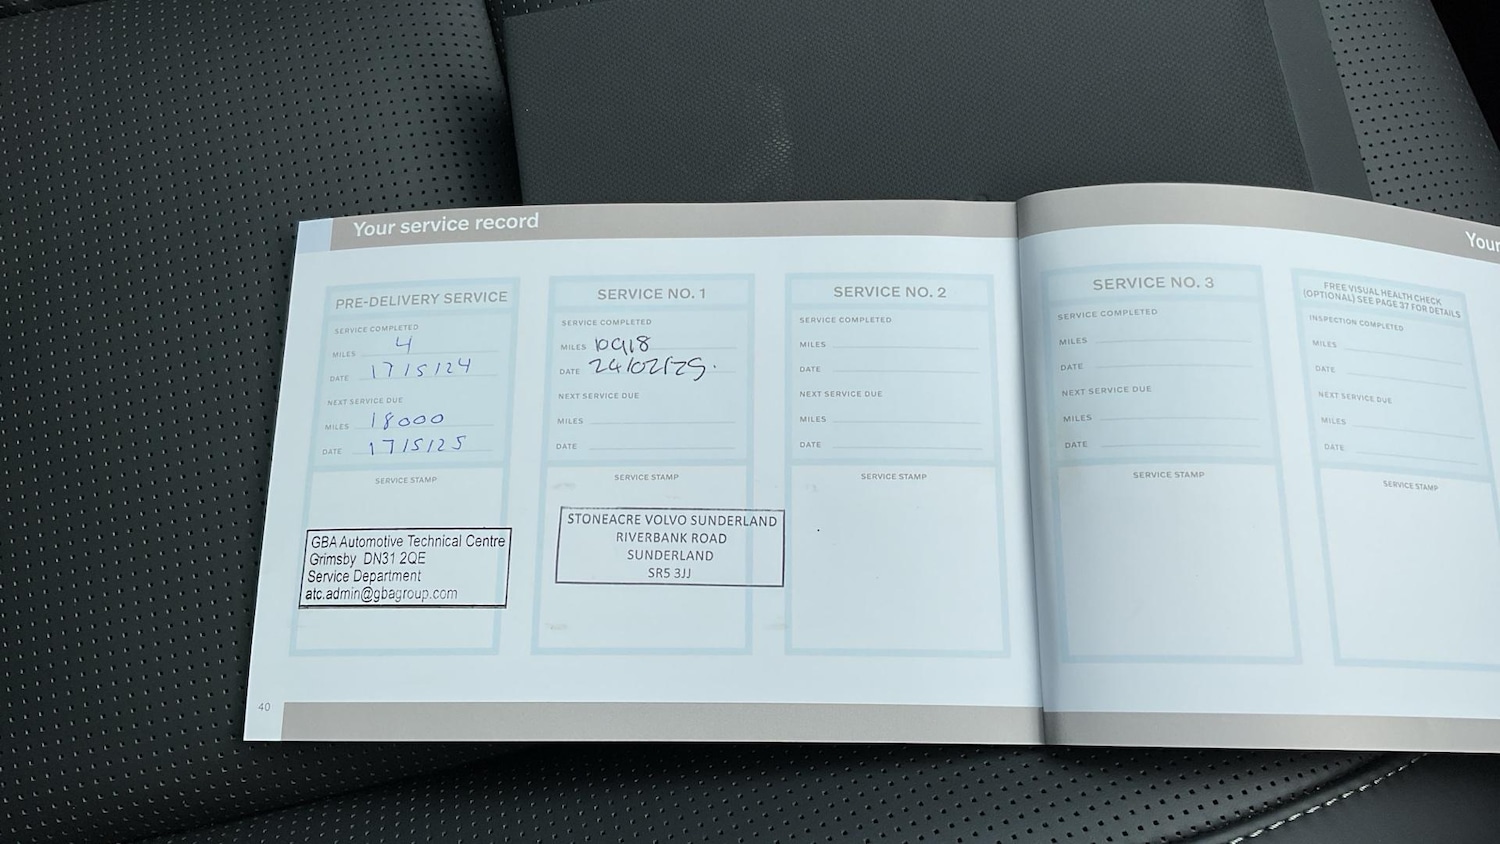 Your service record
PRE-DELIVERY SERVICE
SERVICE COMPLETED
MILES 4
DATE 17/5/24
NEXT SERVICE DUE
MILES 18000
DATE 17/5/25
SERVICE STAMP
GBA Automotive Technical Centre
Grimsby DN31 2QE
Service Department
atc.admin@gbagroup.com
SERVICE NO. 1
SERVICE COMPLETED
MILES 10918
DATE 24/02/25.
NEXT SERVICE DUE
MILES
DATE
SERVICE STAMP
STONEACRE VOLVO SUNDERLAND
RIVERBANK ROAD
SUNDERLAND
SR5 3JJ
SERVICE NO. 2
SERVICE COMPLETED
MILES
DATE
NEXT SERVICE DUE
MILES
DATE
SERVICE STAMP
40
Your
SERVICE NO. 3
SERVICE COMPLETED
MILES
DATE
NEXT SERVICE DUE
MILES
DATE
SERVICE STAMP
FREE VISUAL HEALTH CHECK
(OPTIONAL) SEE PAGE 37 FOR DETAILS
INSPECTION COMPLETED
MILES
DATE
NEXT SERVICE DUE
MILES
DATE
SERVICE STAMP